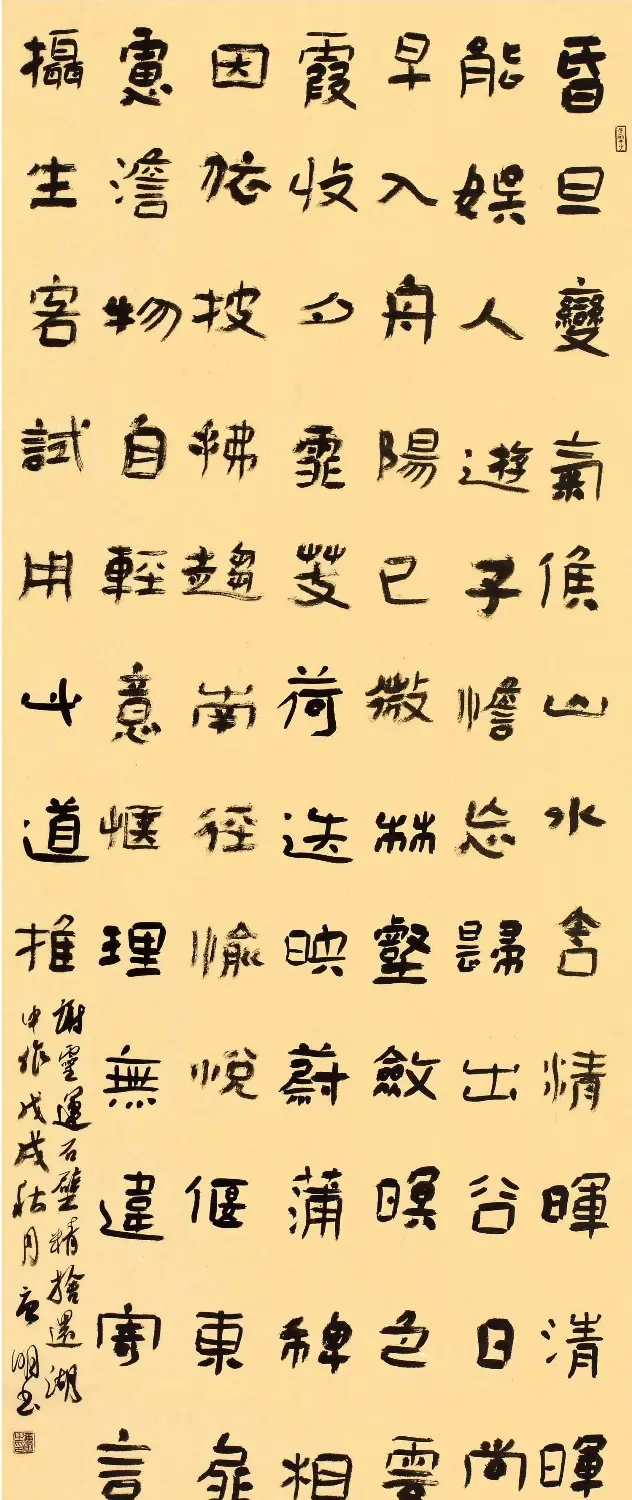 昏旦變氣候山水含清暉清暉
能娛人遊子憺忘歸出谷日尚
早入舟陽已微林壑斂暝色雲
霞收夕霏芰荷迭映蔚蒲稗相
因依披拂趨南徑愉悅偃東扉
慮澹物自輕意愜理無違寄言
攝生客試用此道推
謝靈運石壁精捨還湖
中作戊戌秋月明書